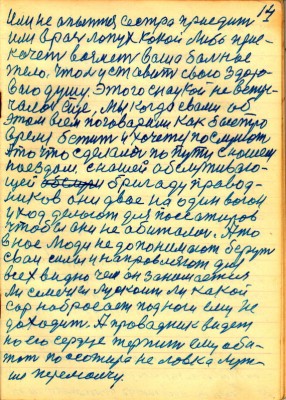 14
Или не опытня сестра приедит
или врач лопух какой либо прис-
качет возмет ваше больное
тело, чтоли уставить свою здоро-
вую душу. Этого снаукой не всту-
пало еще. Мы когда свами об
этом всем поговарим как быстро
время бежит и хочется послушат
А то что сделалос по пути снашем
поездом. снашей обслуживаю-
щей бригаду провод-
ников они двое на один вогон
и уход делают для поссажиров
чтобы они не обиталис. А то
вное люди не допонимают берут
свои силы и направляют для
всех видно чем он занимается
Ли семечки лускоит ли какой
сор набросает под ноги ему не
доходит. А провадник видет
но его сердце терпит ему оби-
тет поссожира не ловка луч-
ше перемолчу.